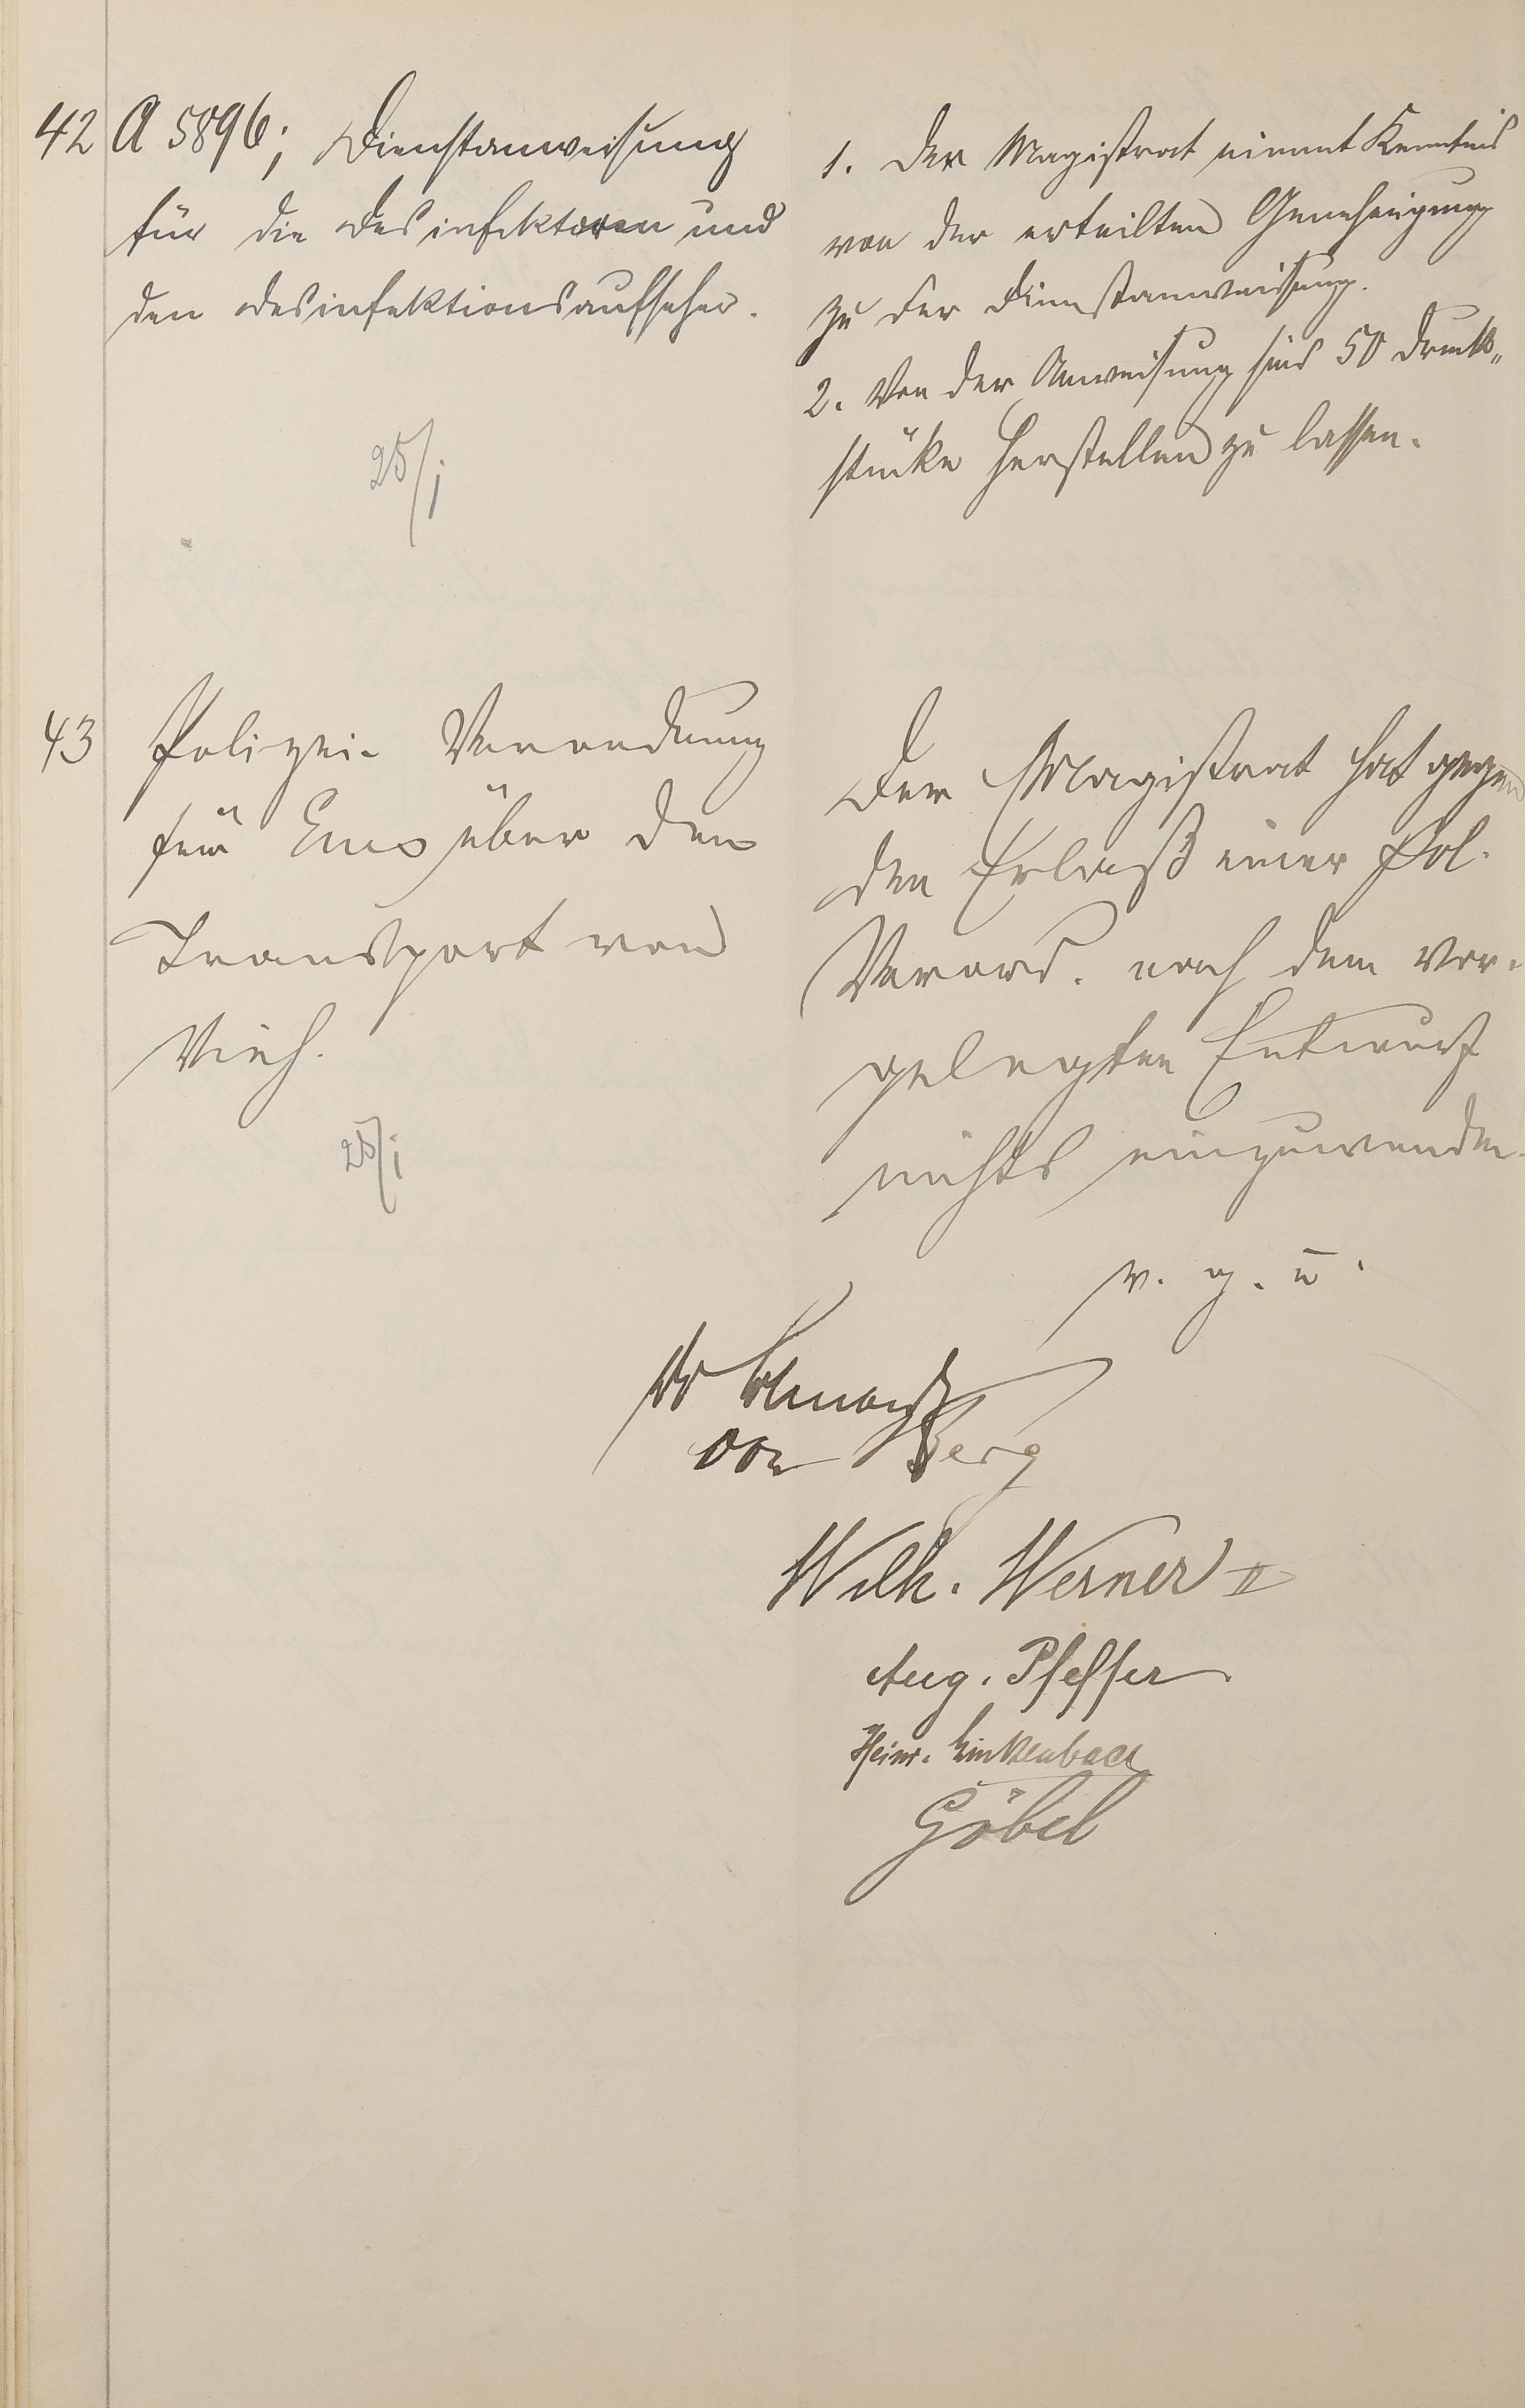 42 A 5896; Dienstanweisung
für die Desinfektoren und
den Desinfektionsaufseher.
25/I
1. Der Magistrat nimmt Kenntnis
von der erteilten Genehmigung
zu der Dienstanweisung.
2. Von der Anweisung sind 50 Druck„
stücke herstellen zu lassen.
43 Polizei-Verordnung
für Ems über den
Transport von
Vieh.
25/I
Der Magistrat hat gegen
den Erlaß einer Pol.
Verord. nach dem vor-
gelegten Entwurf
nichts einzuwenden.
v. g. u.
von Berg
Wilh. Werner II
Aug. Pfeffer
Heinr. Linkenbach
Göbel